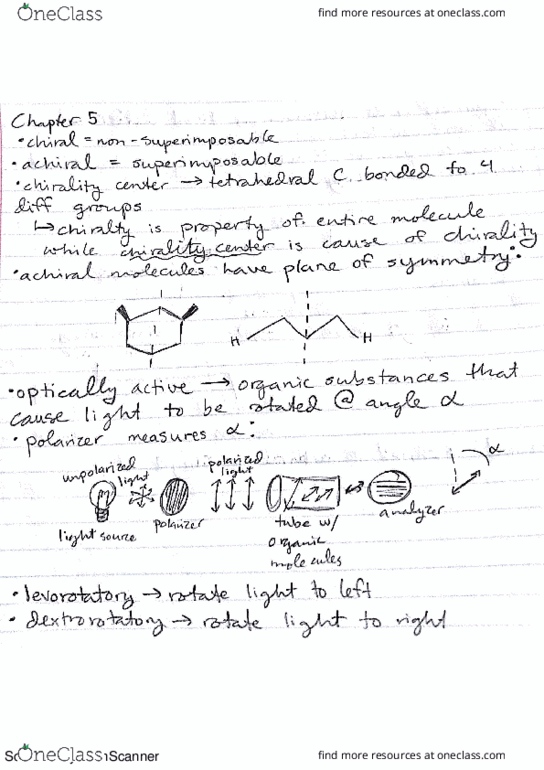 OneClass
find more resources at oneclass.com
Chapter 5
• chiral = non-superimposable
• achiral = superimposable
• chirality center → tetrahedral C bonded to 4
diff groups
↳ chiralty is property of entire molecule
while chirality center is cause of chirality
• achiral molecules have plane of symmetry:
H
H
• optically active → organic substances that
cause light to be rotated @ angle α
• polarizer measures α:
unpolarized
light
polarized
light
α
light source
polarizer
tube w/
organic
molecules
analyzer
• levorotatory → rotate light to left
• dextrorotatory → rotate light to right
OneClass
Scanner
find more resources at oneclass.com